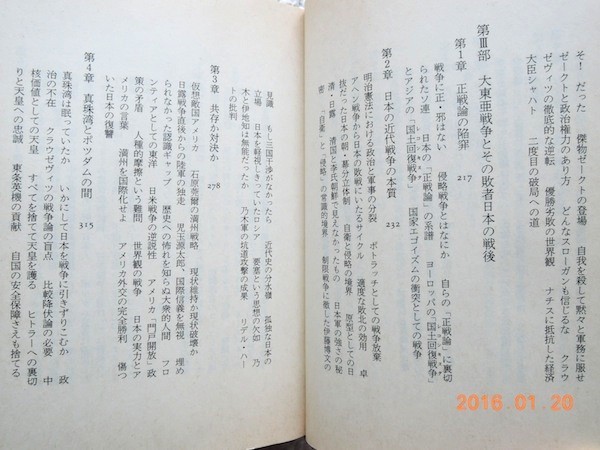 そ! だった 傑物ゼークトの登場 自我を殺して黙々と軍務に服せ
ゼークトと政治権力のあり方 どんなスローガンも信じるな クラウ
ゼヴィツの徹底的な逆転 優勝劣敗の世界観 ナチスに抵抗した経済
大臣シャハト 二度目の破局への道
第Ⅲ部 大東亜戦争とその敗者日本の戦後
第1章 正戦論の陥罪 217
戦争に正・邪はない 侵略戦争とはなにか 自らの「正戦論」に裏切
られたソ連 日本の「正戦論」の系譜 ヨーロッパの「国土回復戦争」
とアジアの「国土回復戦争」 国家エゴイズムの衝突としての戦争
第2章 日本の近代戦争の本質 232
明治憲法における政治と軍事の分裂 ポトラッチとしての戦争放棄
アヘン戦争から日本の敗戦にいたるサイクル 適度な敗北の効用 卓
抜だった日本の朝・幕分立体制 自衛と侵略の境界 原型としての日
清・日露 清国と李氏朝鮮で見えなかったもの 日本軍の強さの秘
密 「自衛」と「侵略」の常識的境界 制限戦争に徹した伊藤博文の
見識 もし三国干渉がなかったら 近代史の分水嶺 孤独な日本の
立場 日本を軽視しきっていたロシア 要塞という思想の欠如 乃
木と伊地知は無能だったか 乃木軍の坑道攻撃の成果 リデル・ハー
トの批判
第3章 共存か対決か 278
仮想敵国アメリカ 石原莞爾の満州戦略 現状維持か現状破壊か
日露戦争直後からの陸軍の独走 児玉源太郎、国際信義を無視 埋め
られなかった認識ギャップ 歴史への怖れを知らぬ大衆的人間 フロ
ンティアとしての東洋 日米戦争の逆説性 アメリカ「門戸開放」政
策の矛盾 人種的摩擦という難問 世界観の戦争 日本の実力とア
メリカの言葉 満州を国際化しよう アメリカ外交の完全勝利 傷つ
いた日本の復讐
第4章 真珠湾とポツダムの間 315
真珠湾は眠っていたか いかにして日本を戦争に引きずりこむか 政
治の不在 クラウゼヴィツの戦争論の盲点 比較降伏論の必要 中
核価値としての天皇 すべてを捨てて天皇を護る ヒトラーへの裏切
りと天皇への忠誠 東条英機の貢献 自国の安全保障さえも捨てる
2016.01.20